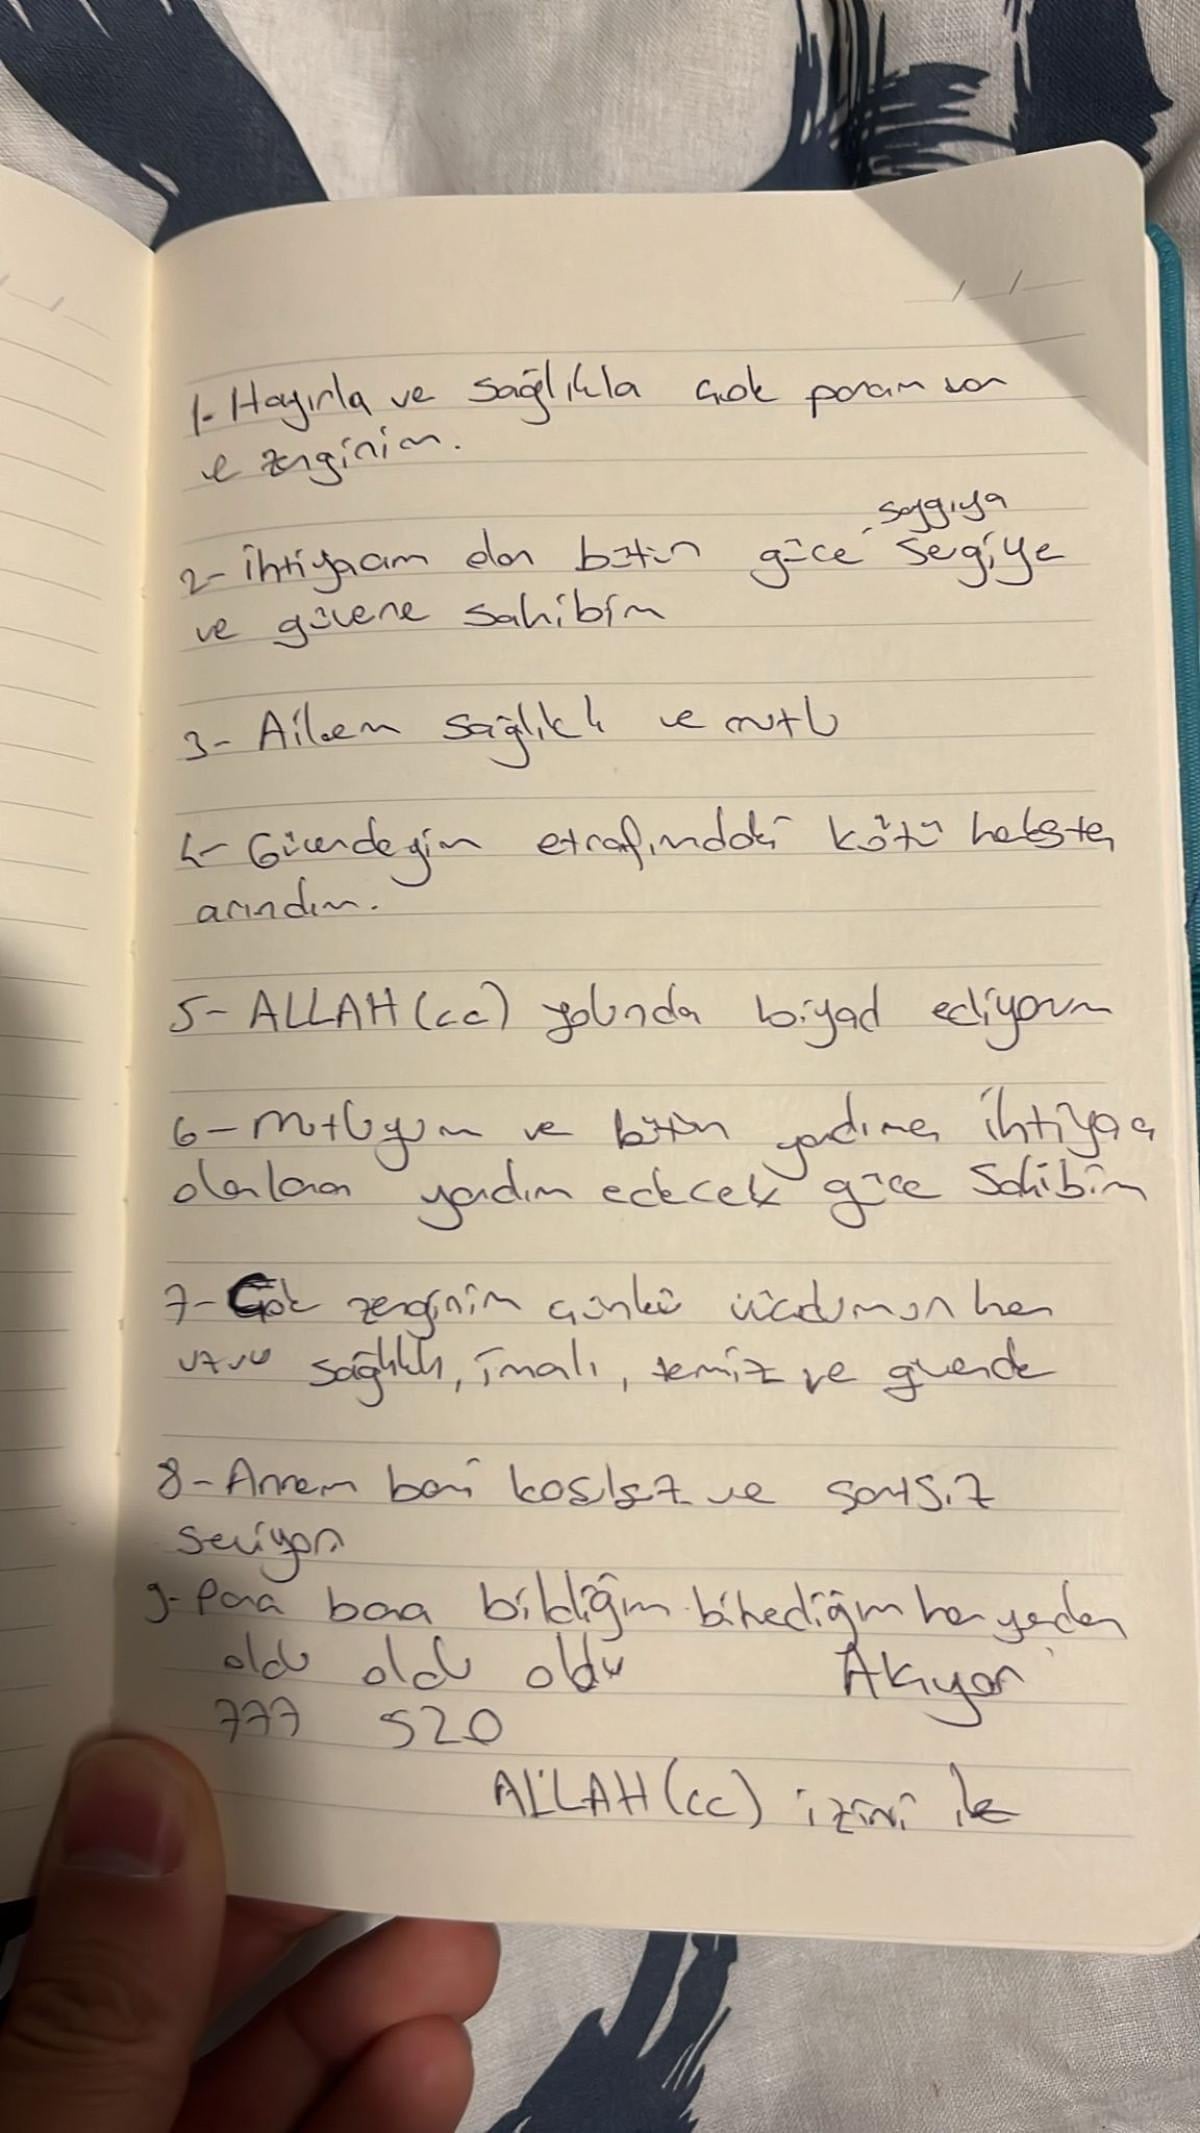 1- Hayırla ve sağlıkla çok param var
ve zenginim.
saygıya
2- İhtiyacım olan bütün güce, segiye
ve güvene sahibim
3- Ailem sağlıklı ve mutlu
4- Güvendeyim etrafımdaki kötü herkesten
arındım.
5- ALLAH(cc) yolunda biyad ediyorum
6- mutluyum ve bütün yardıma ihtiyacı
olanlara yardım edecek güce sahibim
7- Çok zenginim çünkü vücudumun her
uzvu sağlıklı, imalı, temiz ve güvende
8- Annem beni koşulsuz ve şartsız
seviyor
9- Para bana bildiğim bilmediğim her yerden
oldu oldu oldu Akıyor
777 520
ALLAH(cc) izini ile